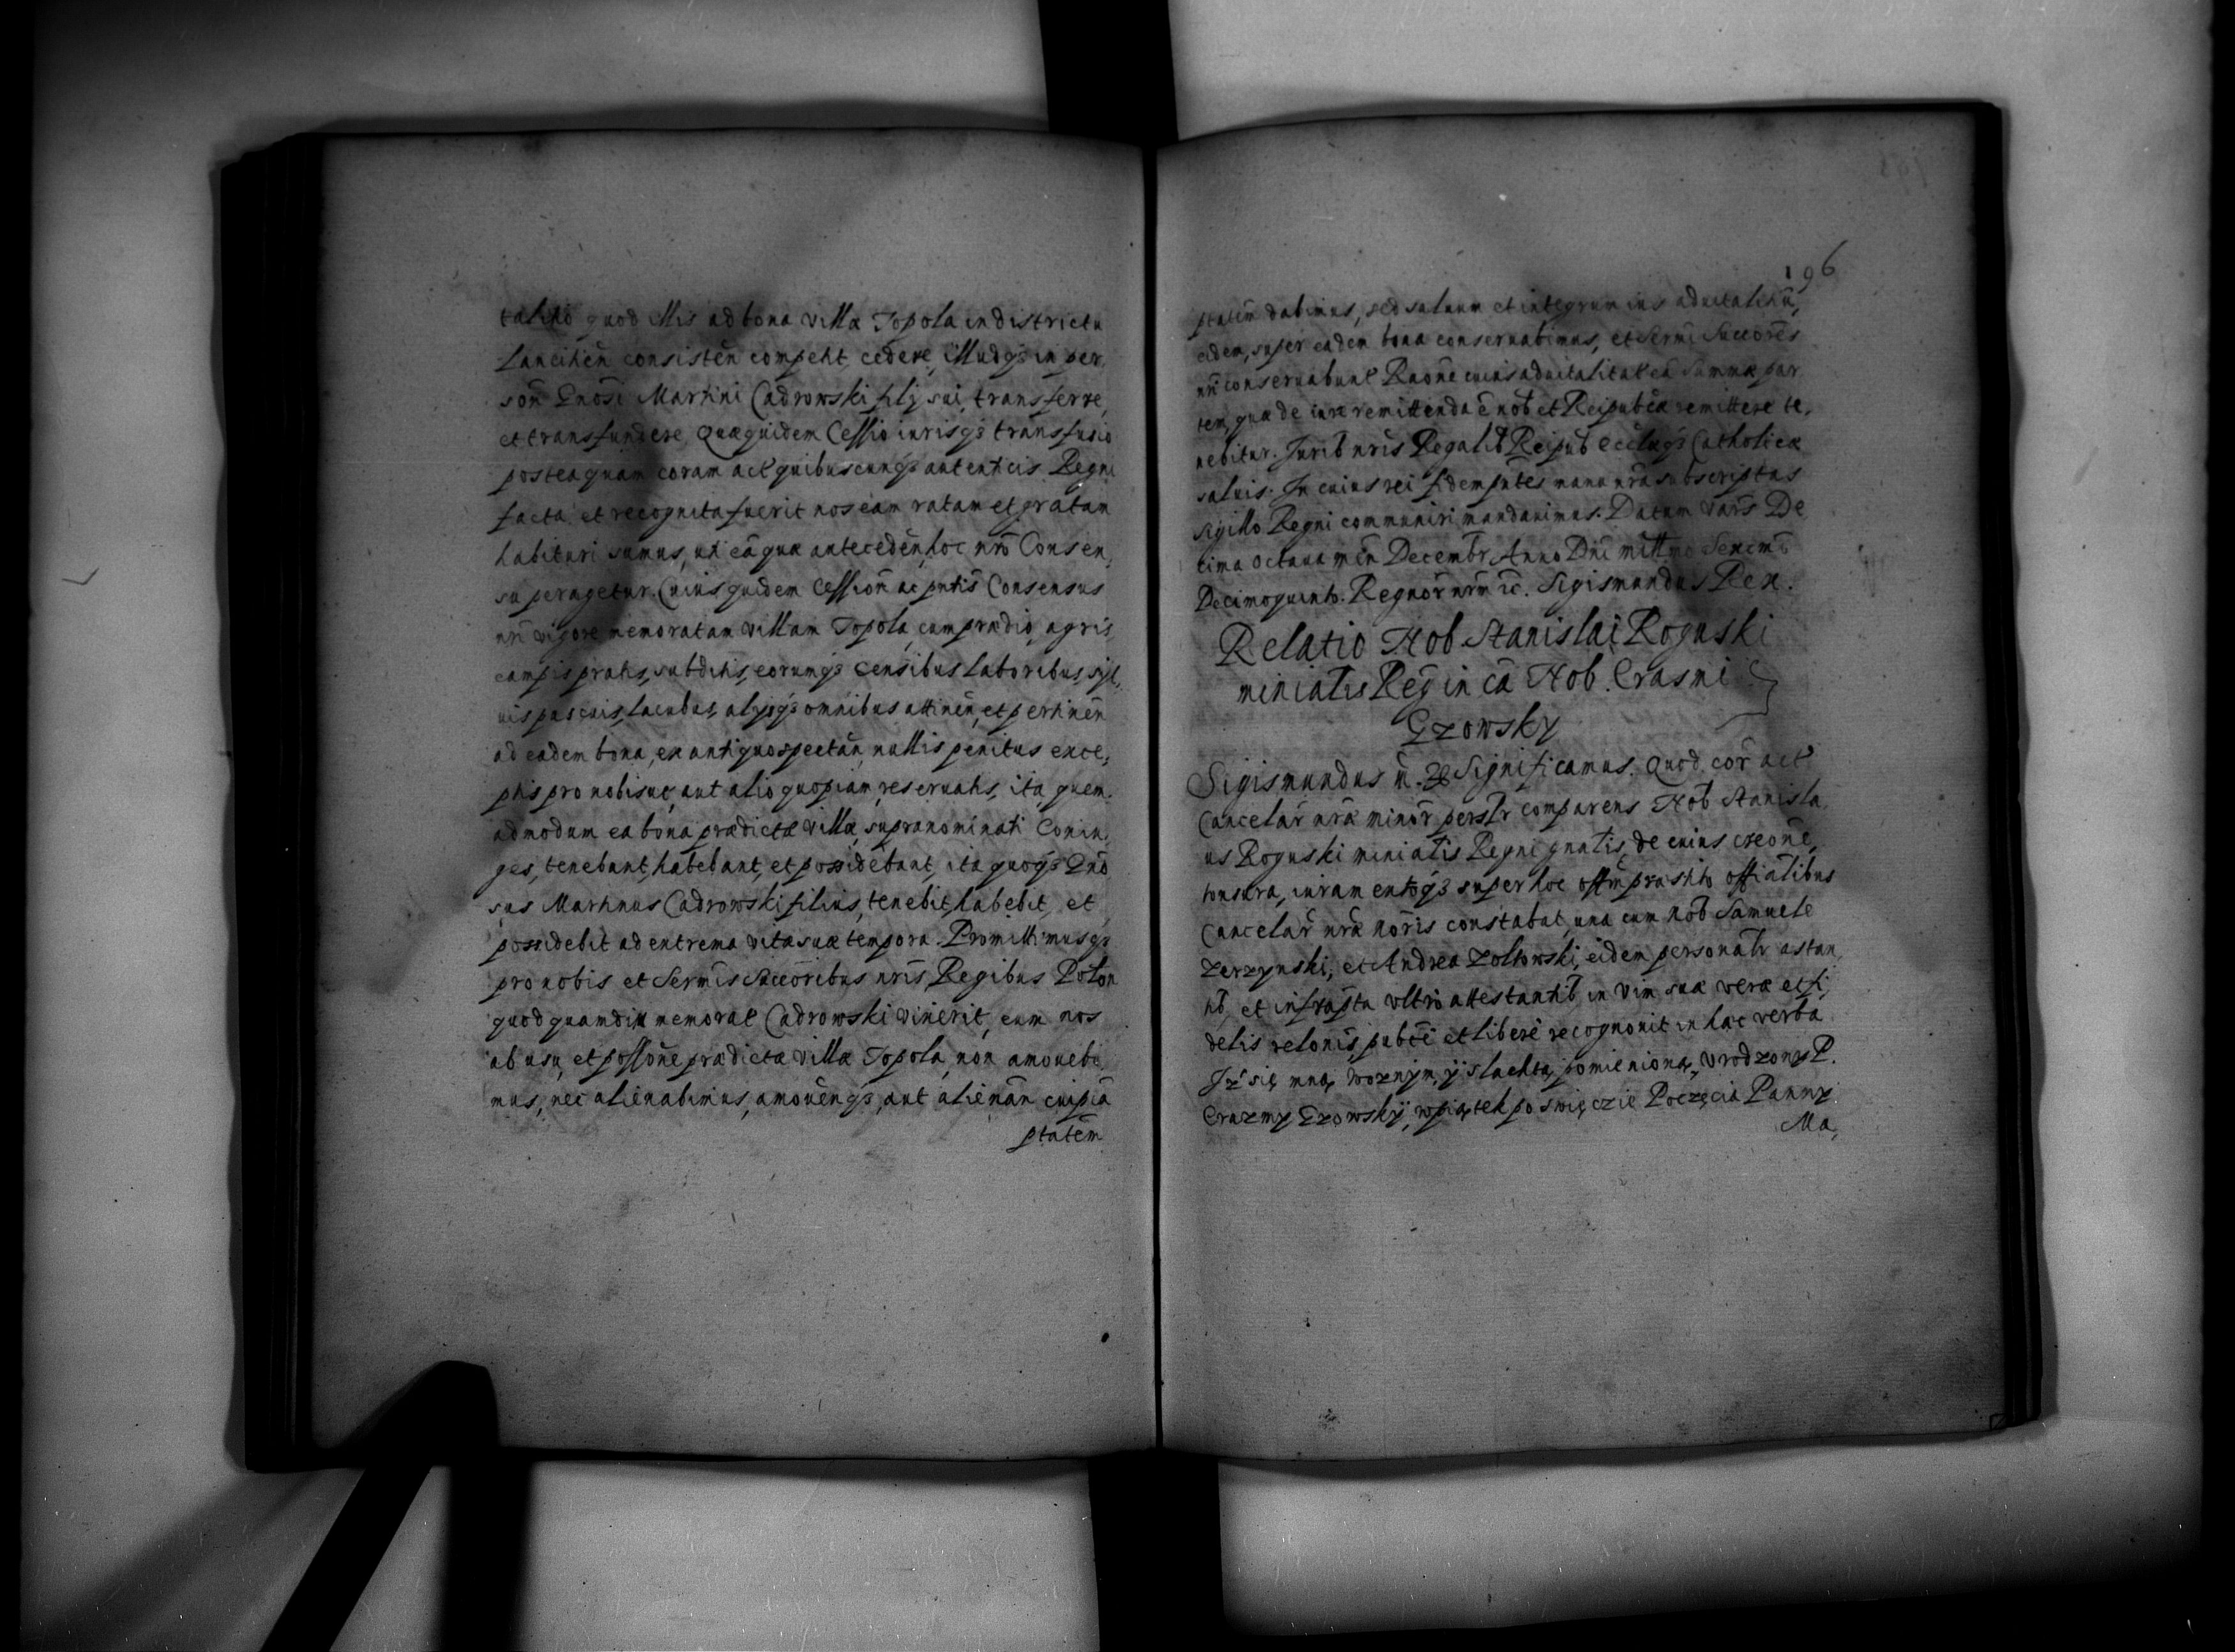 talitio quod illis ad bona villæ Topola in districtu
Lancicien̄ consisten̄ competit, cedere, illudq̃ in per,
son̄ Gnōsi Martini Cadrowski filij sui, transferre,
et transfundere, Quæquidem Cessio iurisq̃ transfusio
posteaquam coram act quibuscunq̃ autenticis Regni
facta et recognita fuerit nos eam ratam et gratam
habituri sumus, uti eā quæ anteceden̄, hoc nr̄o Consen,
su peragetur. Cuius quidem Cession̄ ac pn̄tis Consensus
nr̄i vigore memoratam villam Topola, cum prædio, agris,
campis pratis, subditis, eorumq̃ censibus laboribus, syl,
uis pascuis, lacubus, alijsq̃ omnibus attinen̄, et pertinen̄
ad eadem bona, ex antiquo spectan̄, nullis penitus exce,
ptis pro nobisue, aut alio quopiam, reseruatis, ita quem
admodum ea bona prædictæ villæ, supranominati Coniu,
ges, tenebant, habebant, et possidebant, ita quoq̃ Gnō
sus Martinus Cadrowski filius, tenebit, habebit, et
possidebit ad extrema vitæ suæ tempora. Promittimusq̃
pro nobis et Serm̄is Succ̄oribus nr̄is Regibus Polon
quod quamdiu memorat Cadrowski vixerit, eum nos
ab usu, et possōne prædictæ villæ Topola, non amouebi,
mus, nec alienabimus, amouen̄q̃, aut alienan̄ cuipiā
ptatēm
196
ptatēm dabimus, sed saluum et integrum ius aduitalitiū,
eidem, super eadem bona conseruabimus, et Serm̄i Succ̄ores
nr̄i conseruabunt Raōne cuius aduitalitat eā Summæ par
tem, quæ de iure remittenda ē nob et Reipub̄cæ remittere te,
nebitur. Jurib nr̄is Regalib Reipub Ecclæq̃ Catholicæ
saluis. In cuius rei fidem pn̄tes manu nr̄a subscriptas
sigillo Regni communiri mandauimus. Datum Vars De
cima octaua men̄ Decembr Anno Dn̄i millmo Sexcm̄o
Decimoquinto. Regnor̄ nr̄m̄ ꝛc. Sigismundus Rex.
Relatio Nob Stanislai Roguski
minialis Reg̃ in cā Nob. Erasmi
Gzowsky
Sigismundus ꝛc. Significamus. Quod cor̄ act
Cancelar̄ nr̄æ minor̄ persłr comparens Nob Stanisla,
us Roguski minialis Regni gnalis, de cuius creōne,
tonsura, iuramentoq̃ super hoc off̄m præstito officialibus
Cancelar̄ nr̄æ nōris constabat, una cum Nob Samuele
Zerzynski, et Andrea Zoltowski, eidem personałr astan,
tib, et infrapta vltro attestantib in vim suæ veræ et fi,
delis relōnis, pub̄ce et libere recognouit in hæc verba
Jż się mną woznym, y slachtą pomienioną, Vrodzony P.
Erazmy Gzowsky, w piątek po swięczie Poczęcia Panny
Ma,